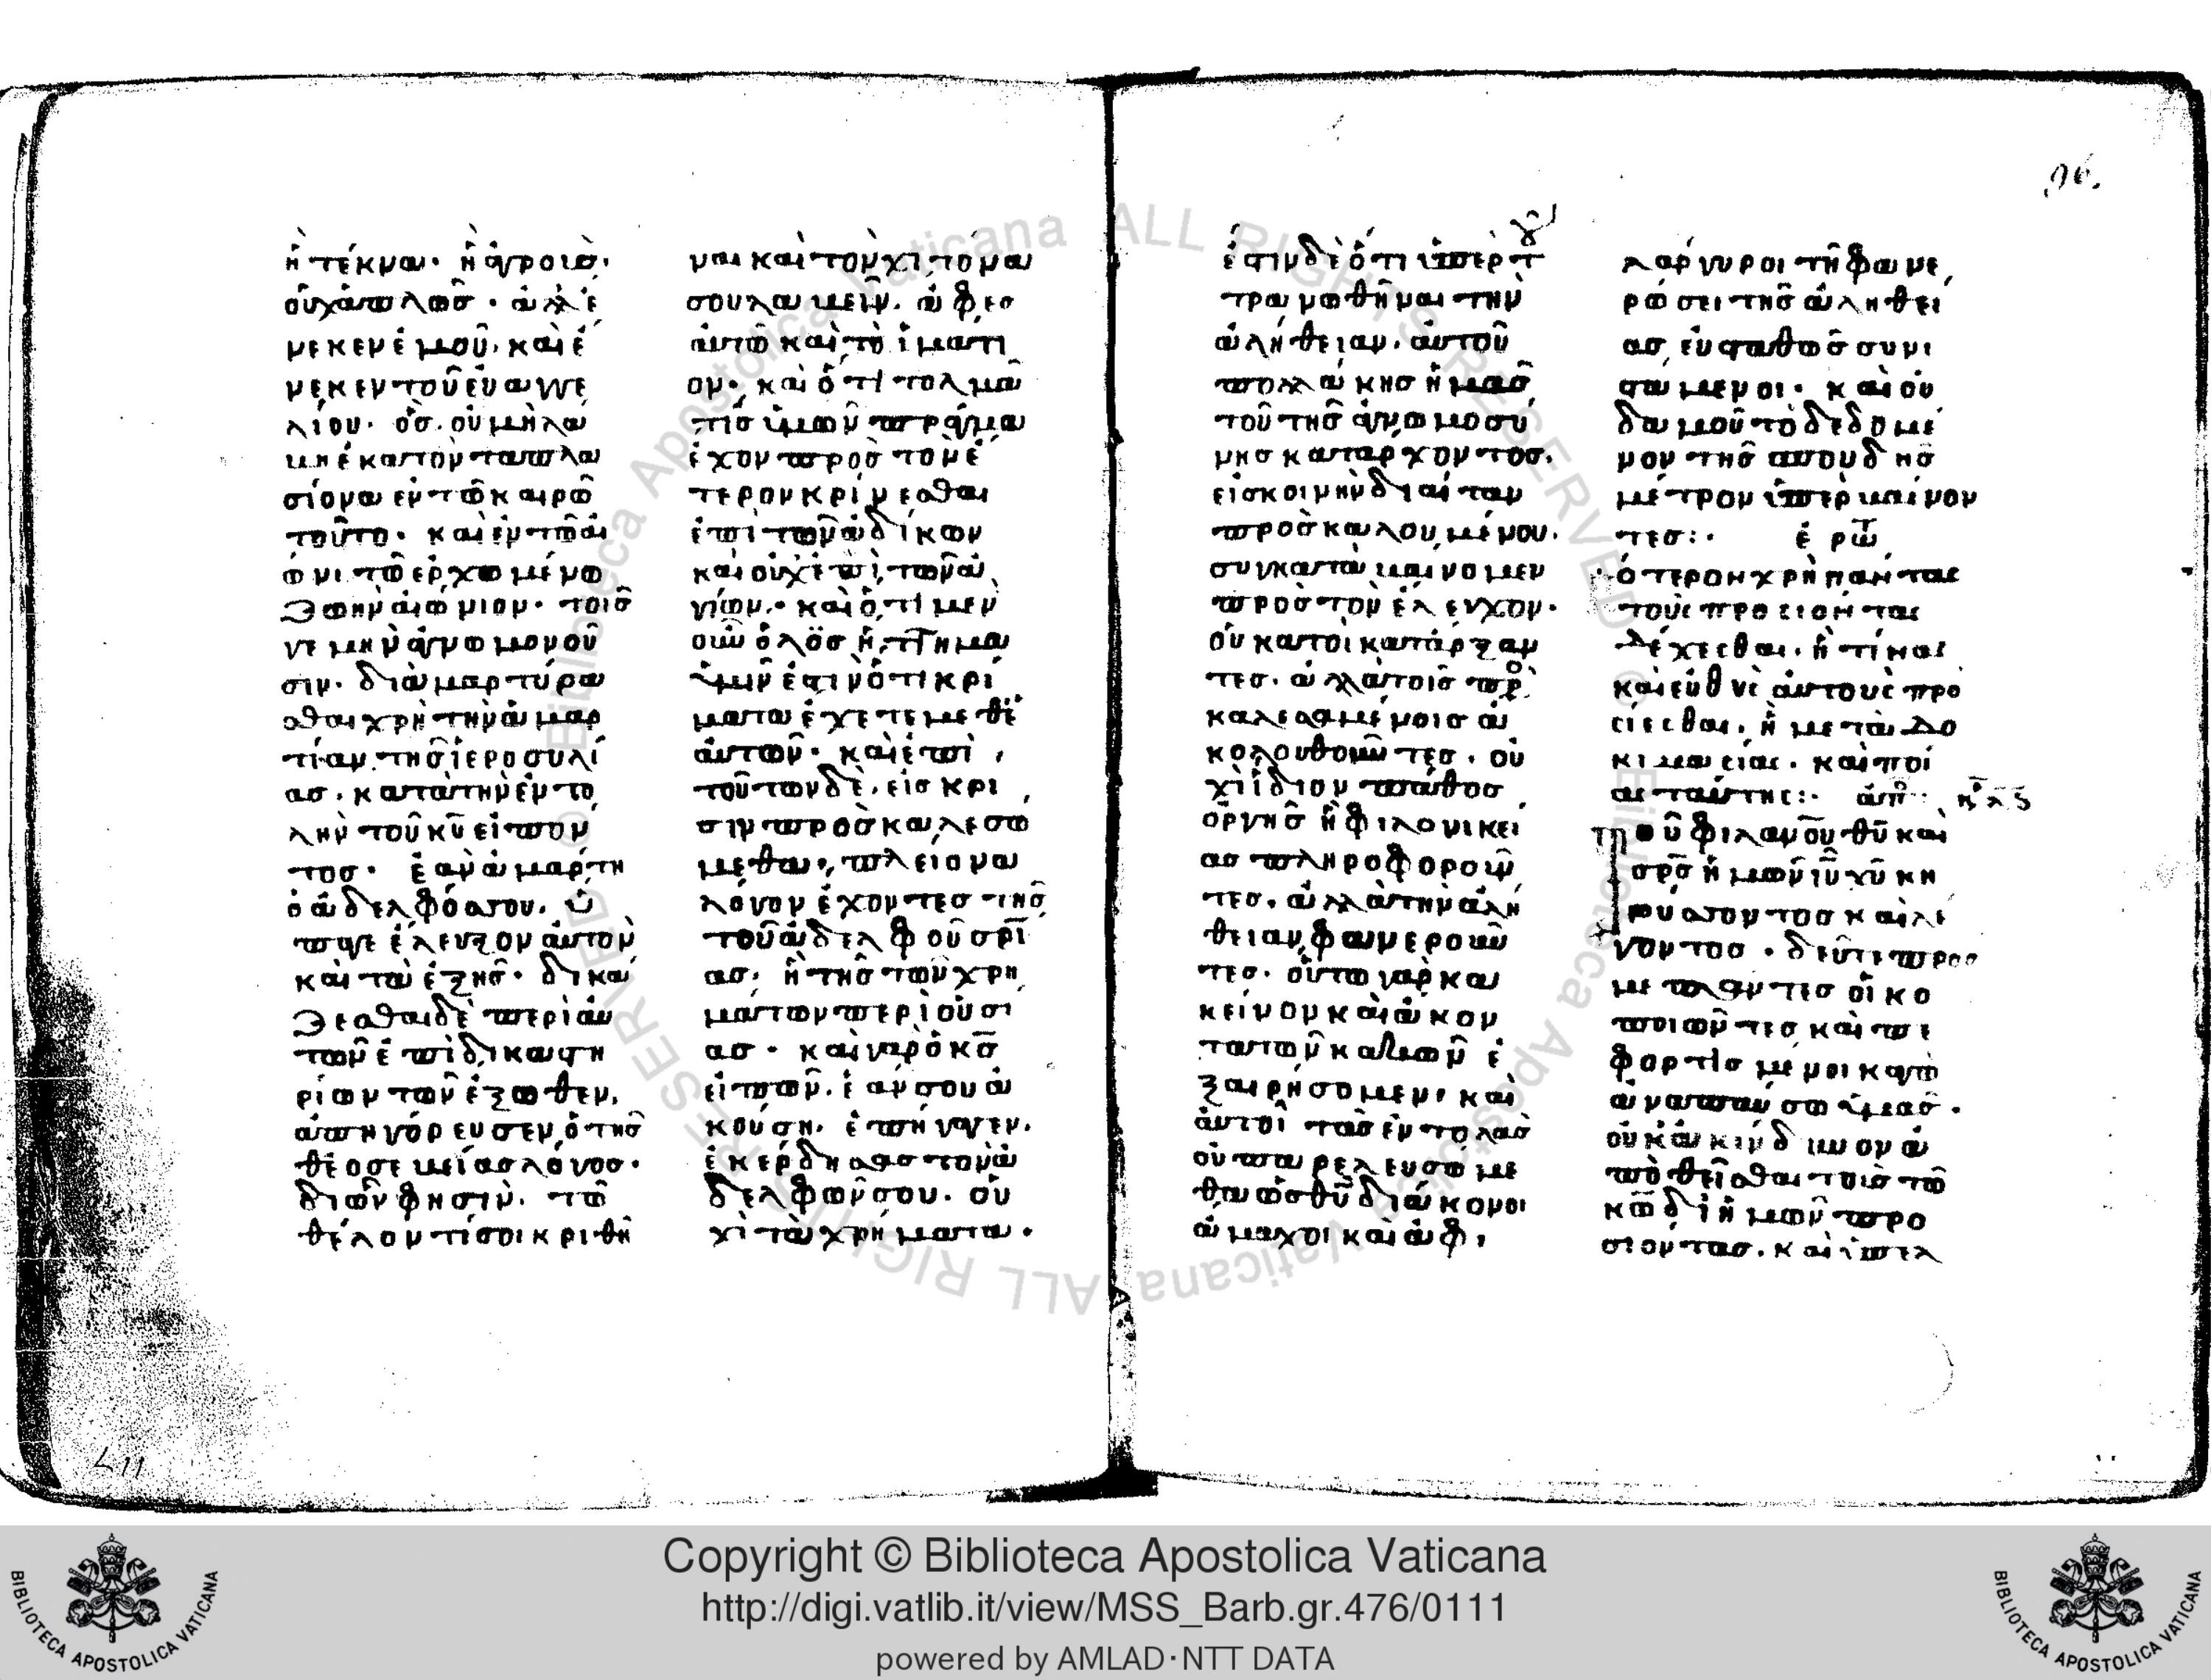 ἢ τέκνα· ἢ ἀγρούσ·
οὐχ ἁπλῶσ· ἀλλ' ἕ
νεκεν ἐμοῦ· καὶ ἕ
νεκεν τοῦ εὐαγγε
λίου· ὃσ οὐ μὴ λά
βη ἑκατονταπλα
σίονα ἐν τῶ καιρῶ
τούτω· καὶ ἐν τῶ αἰ
ῶνι τῶ ἐρχωμένω
ζωὴν αἰώνιον· τοῖσ
γε μὴν ἀγνωμονοῦ
σιν· διαμαρτύρα
σθαι χρὴ τὴν ἁμαρ
τίαν τῆσ ἱεροσυλί
ασ· κατὰ τὴν ἐντο
λὴν τοῦ κυ εἰπόν
τοσ· ἐὰν ἁμάρτη
ὁ ἀδελφόσ σου· ὕ
παγε ἔλευξον αὐτὸν
καὶ τὰ ἑξῆσ· δικά
ζεσθαι δὲ περὶ αὐ
τῶν ἐπὶ δικαστη
ρίων τῶν ἔξωθεν,
ἀπηγόρευσεν ὁ τῆσ
θεοσεβείασ λόγοσ·
δι' ὧν φησιν· τῶ
θέλοντί σοι κριθῆ
ναι καὶ τὸν χιτόνα
σου λαβεῖν· ἄφεσ
αὐτῶ καὶ τὸ ἱμάτι
ον· καὶ ὅτι τολμᾶ
τίσ ὑμῶν πράγμα
ἔχον πρὸσ τὸν ἕ
τερον κρίνεσθαι
ἐπὶ τῶν ἀδίκων
καὶ οὐχ ἐπὶ τῶν ἁ
γίων· καὶ ὅτι μὲν
οὖν ὅλοσ ἥττημα
ὑμῖν ἐστὶν ὅτι κρί
ματα ἔχετε μεθ' ἑ
αυτῶν· καὶ ἐπὶ
τούτων δὲ, εἰσ κρί
σιν προσκαλεσώ
μεθα, πλείονα
λόγον ἔχοντεσ τῆσ
τοῦ ἀδελφοῦ σρι
ασ, ἢ τῆσ τῶν χρη
μάτων περιουσί
ασ· καὶ γὰρ ὁ κσ
εἰπὼν· ἐάν σου ἀ
κούση· ἐπήγαγεν·
ἐκέρδησασ τὸν ἀ
δελφών σου· οὐ
χὶ τὰ χρήματα·
ἔστιν δὲ ὅτι ὑπὲρ τ
τρανωθῆναι τὴν
ἀλήθειαν· αὐτοῦ
πολλάκησ ἡμᾶσ
τοῦ τῆσ ἀγνωμοσύ
νησ κατάρχοντοσ·
εἰσ κοινὴν δίαιταν
προσκαλουμένου·
συγκαταβαίνομεν
πρὸσ τὸν ἔλευχον·
οὐκ αὐτοὶ κατάρξαν
τεσ· ἀλλὰ τοῖσ προ
καλεσαμένοισ ἀ
κολουθοῦντεσ· οὐ
χὶ ἴδιον πάθοσ
ὀργῆσ ἢ φιλονικεί
ασ πληροφοροῦν
τεσ· ἀλλὰ τὴν ἀλή
θειαν φανεροῦν
τεσ· οὕτω γὰρ κἀ
κεῖνον καὶ ἄκον
τα τῶν κακῶν ἐ
ξαιρήσομεν, καὶ
αὐτοὶ τὰσ ἐντολὰσ
οὐ παρελευσώμε
θα ὡσ θυ διάκονοι
ἄμαχοι καὶ ἀφι
λάργυροι τῆ φανε
ρώσει τῆσ ἀληθεί
ασ εὐσταθῶσ συνι
στάμενοι· καὶ οὐ
δαμοῦ τὸ δεδομέ
νον τῆσ σπουδῆσ
μέτρον ὑπερβαίνον
τεσ:· ἐρωτ
Πότερον χρὴ πάντας
τοὺς προσιόντας
δέχεσθαι· ἢ τινάς
καὶ εὐθὺς αὐτοὺς προ
σίεσθαι, ἢ μετὰ δο
κιμασίας· καὶ ποί
ας ταύτης:· ἀπ
Τοῦ φιλανου θυ καὶ
σρσ ἡμῶν ιυ χυ κη
ρύσοντοσ καὶ λέ
γοντοσ· δεῦτε πρόσ
με πάντεσ οἱ κο
πιῶντεσ καὶ πε
φορτισμένοι κἀγὼ
ἀναπαύσω ὑμᾶσ·
οὐκ ἀκίνδυνον ἀ
πωθεῖσθαι τοὺσ τῶ
κω δι' ἡμῶν προ
σιόντασ· καὶ ὑπελ